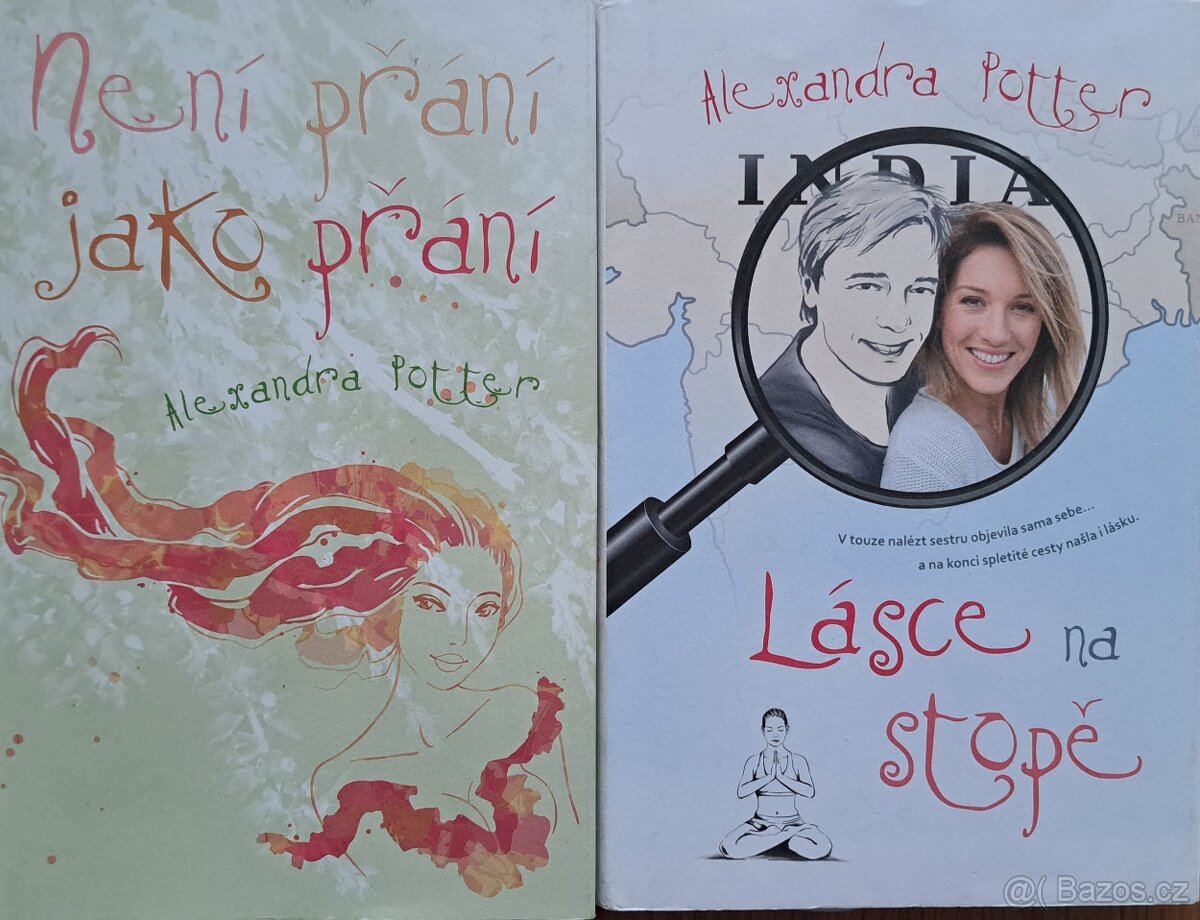 Není přání
jako přání
Alexandra Potter
Alexandra Potter
INDIA
BAN
V touze nalézt sestru objevila sama sebe...
a na konci spletité cesty našla i lásku.
Lásce na
stopě
@( Bazos.cz